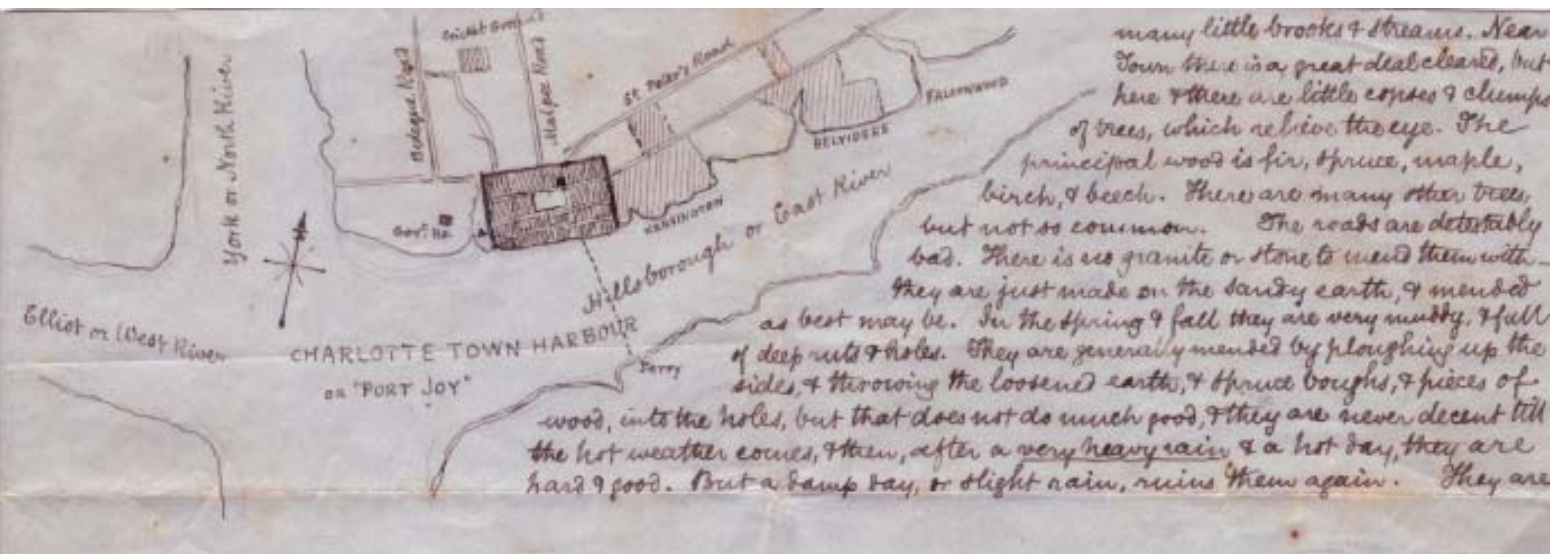 Cricket Ground
Bedeque Road
Malpec Road
St Peter's Road
York or North River
FALCONWOOD
BELVIDERE
KENSINGTON
Govt. Ho.
Hillsborough or East River
Elliot or West River
CHARLOTTE TOWN HARBOUR
OR "PORT JOY"
Ferry
many little brooks & streams. Near
Town there is a great deal cleared, but
here & there are little copses & clumps
of trees, which relieve the eye. The
principal wood is fir, spruce, maple,
birch, & beech. There are many other trees,
but not so common. The roads are detestably
bad. There is no granite or stone to mend them with -
they are just made on the sandy earth, & mended
as best may be. In the spring & fall they are very muddy, & full
of deep ruts & holes. They are generally mended by ploughing up the
sides, & throwing the loosened earth, & spruce boughs, & pieces of
wood, into the holes, but that does not do much good, & they are never decent till
the hot weather comes, & then, after a very heavy rain & a hot day, they are
hard & good. But a damp day, or slight rain, ruins them again. They are